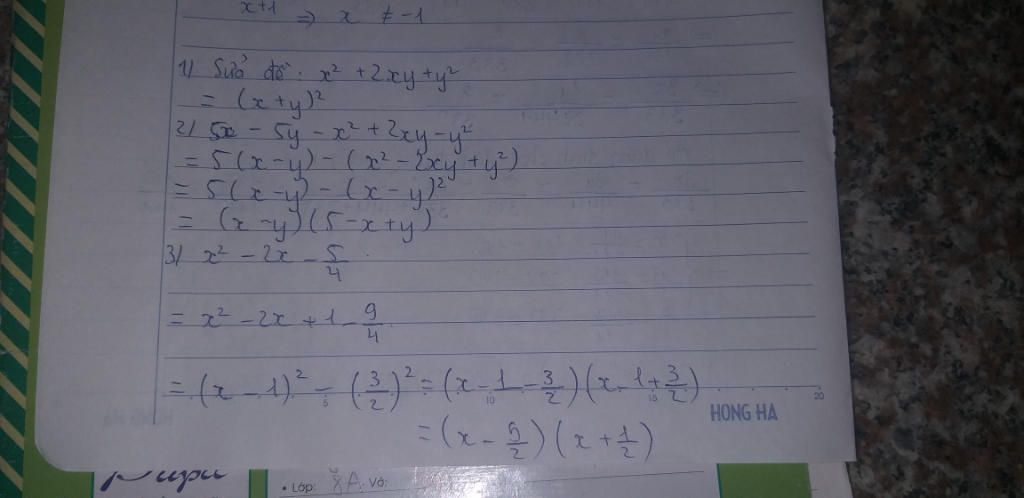 x+1 ⇒ x ≠ -1
1) Sửa đề: x² + 2xy + y²
= (x + y)²
2) 5x - 5y - x² + 2xy - y²
= 5(x - y) - (x² - 2xy + y²)
= 5(x - y) - (x - y)²
= (x - y)(5 - x + y)
3) x² - 2x - 5/4
= x² - 2x + 1 - 9/4
= (x - 1)² - (3/2)² = (x - 1 - 3/2)(x - 1 + 3/2)
5 10 15 20
HONG HA
= (x - 5/2)(x + 1/2)
• Lớp: 8A Vở: